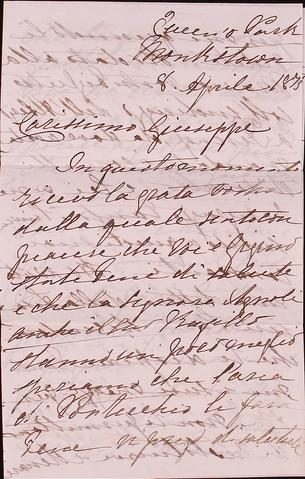 Queen's Park
Monkstown
8. Aprile 1875
Carissimo Giuseppe
In questo momento
ricevo la grata vostra
dalla quale sento con
piacere che voi e Gigino
state bene di salute
e che la Signora Agnoli
anche il suo
stanno un poco meglio
speriamo che l'aria
di li fara
bene